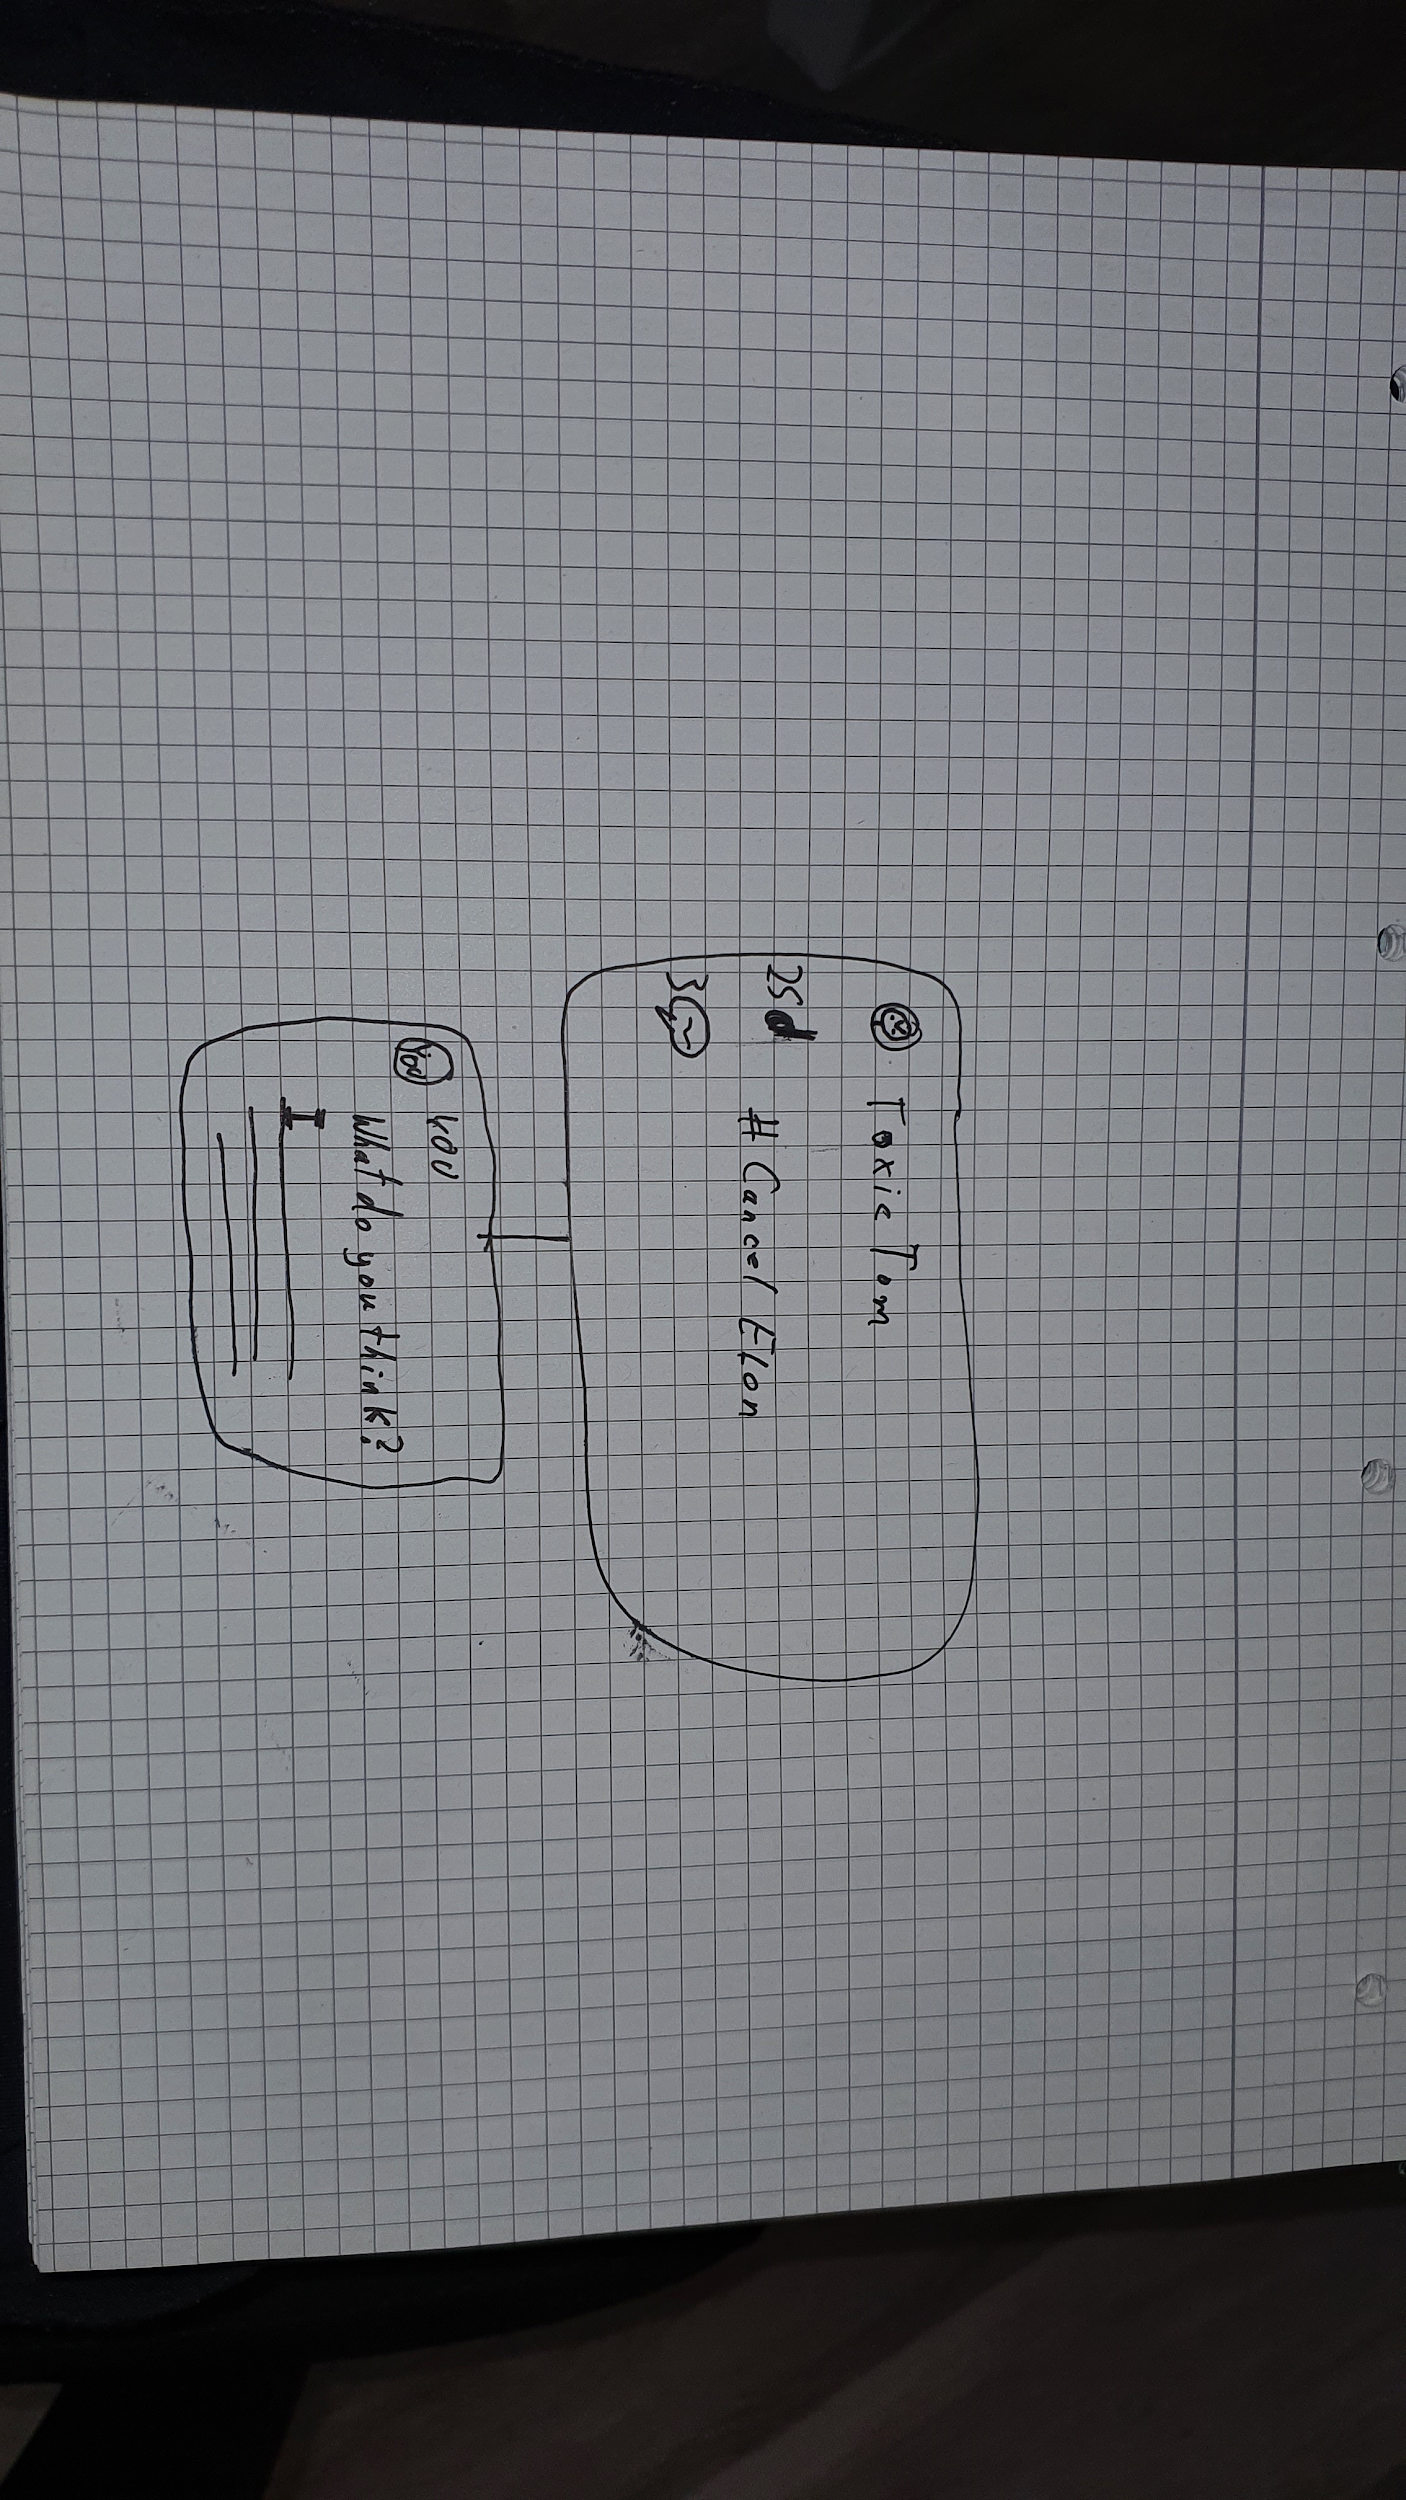 Toxic Tom
25
# Cancel Elon
3
You
You
What do you think?
I